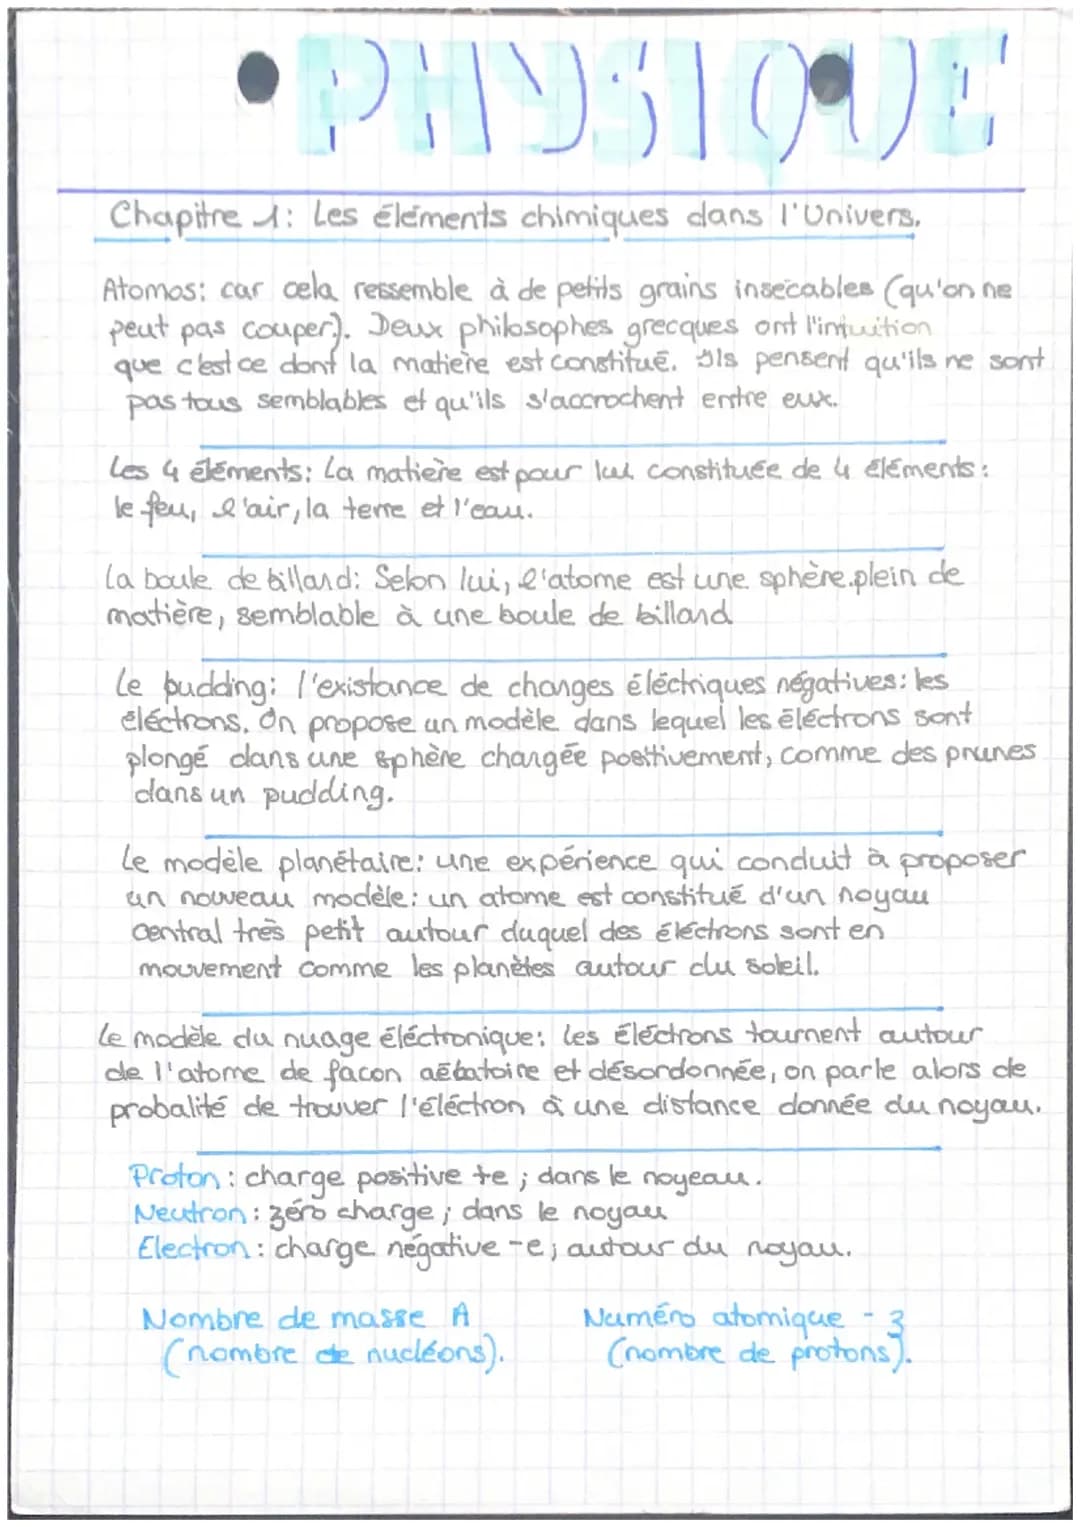 PHYSIQUE
Chapitre 1: Les éléments chimiques dans l'Univers.
Atomos: car cela ressemble à de petits grains insécables (qu'on ne
peut pas couper). Deux philosophes grecques ont l'intuition
que c'est ce dont la matière est constitué. Ils pensent qu'ils ne sont
pas tous semblables et qu'ils s'accrochent entre eux.
Les 4 éléments: La matière est pour lui constituée de 4 éléments:
le feu, l'air, la terre et l'eau.
La boule de billard: Selon lui, l'atome est une sphère plein de
matière, semblable à une boule de billard
Le pudding: l'existance de charges éléctriques négatives: les
éléctrons. On propose un modèle dans lequel les éléctrons sont
plongé dans une sphère chargée positivement, comme des prunes
dans un pudding.
Le modèle planétaire: une expérience qui conduit à proposer
un nouveau modèle: un atome est constitué d'un noyau
central très petit autour duquel des éléctrons sont en
mouvement comme les planètes autour du soleil.
Le modèle du nuage éléctronique: Les éléctrons tournent autour
de l'atome de facon aébatoire et désordonnée, on parle alors de
probalité de trouver l'éléctron à une distance donnée du noyau.
Proton: charge positive +e; dans le noyeau.
Neutron: zéro charge; dans le noyau
Electron: charge négative -e; autour du noyau.
Nombre de masse A
(nombre de nucléons).
Numéro atomique - z
(nombre de protons).